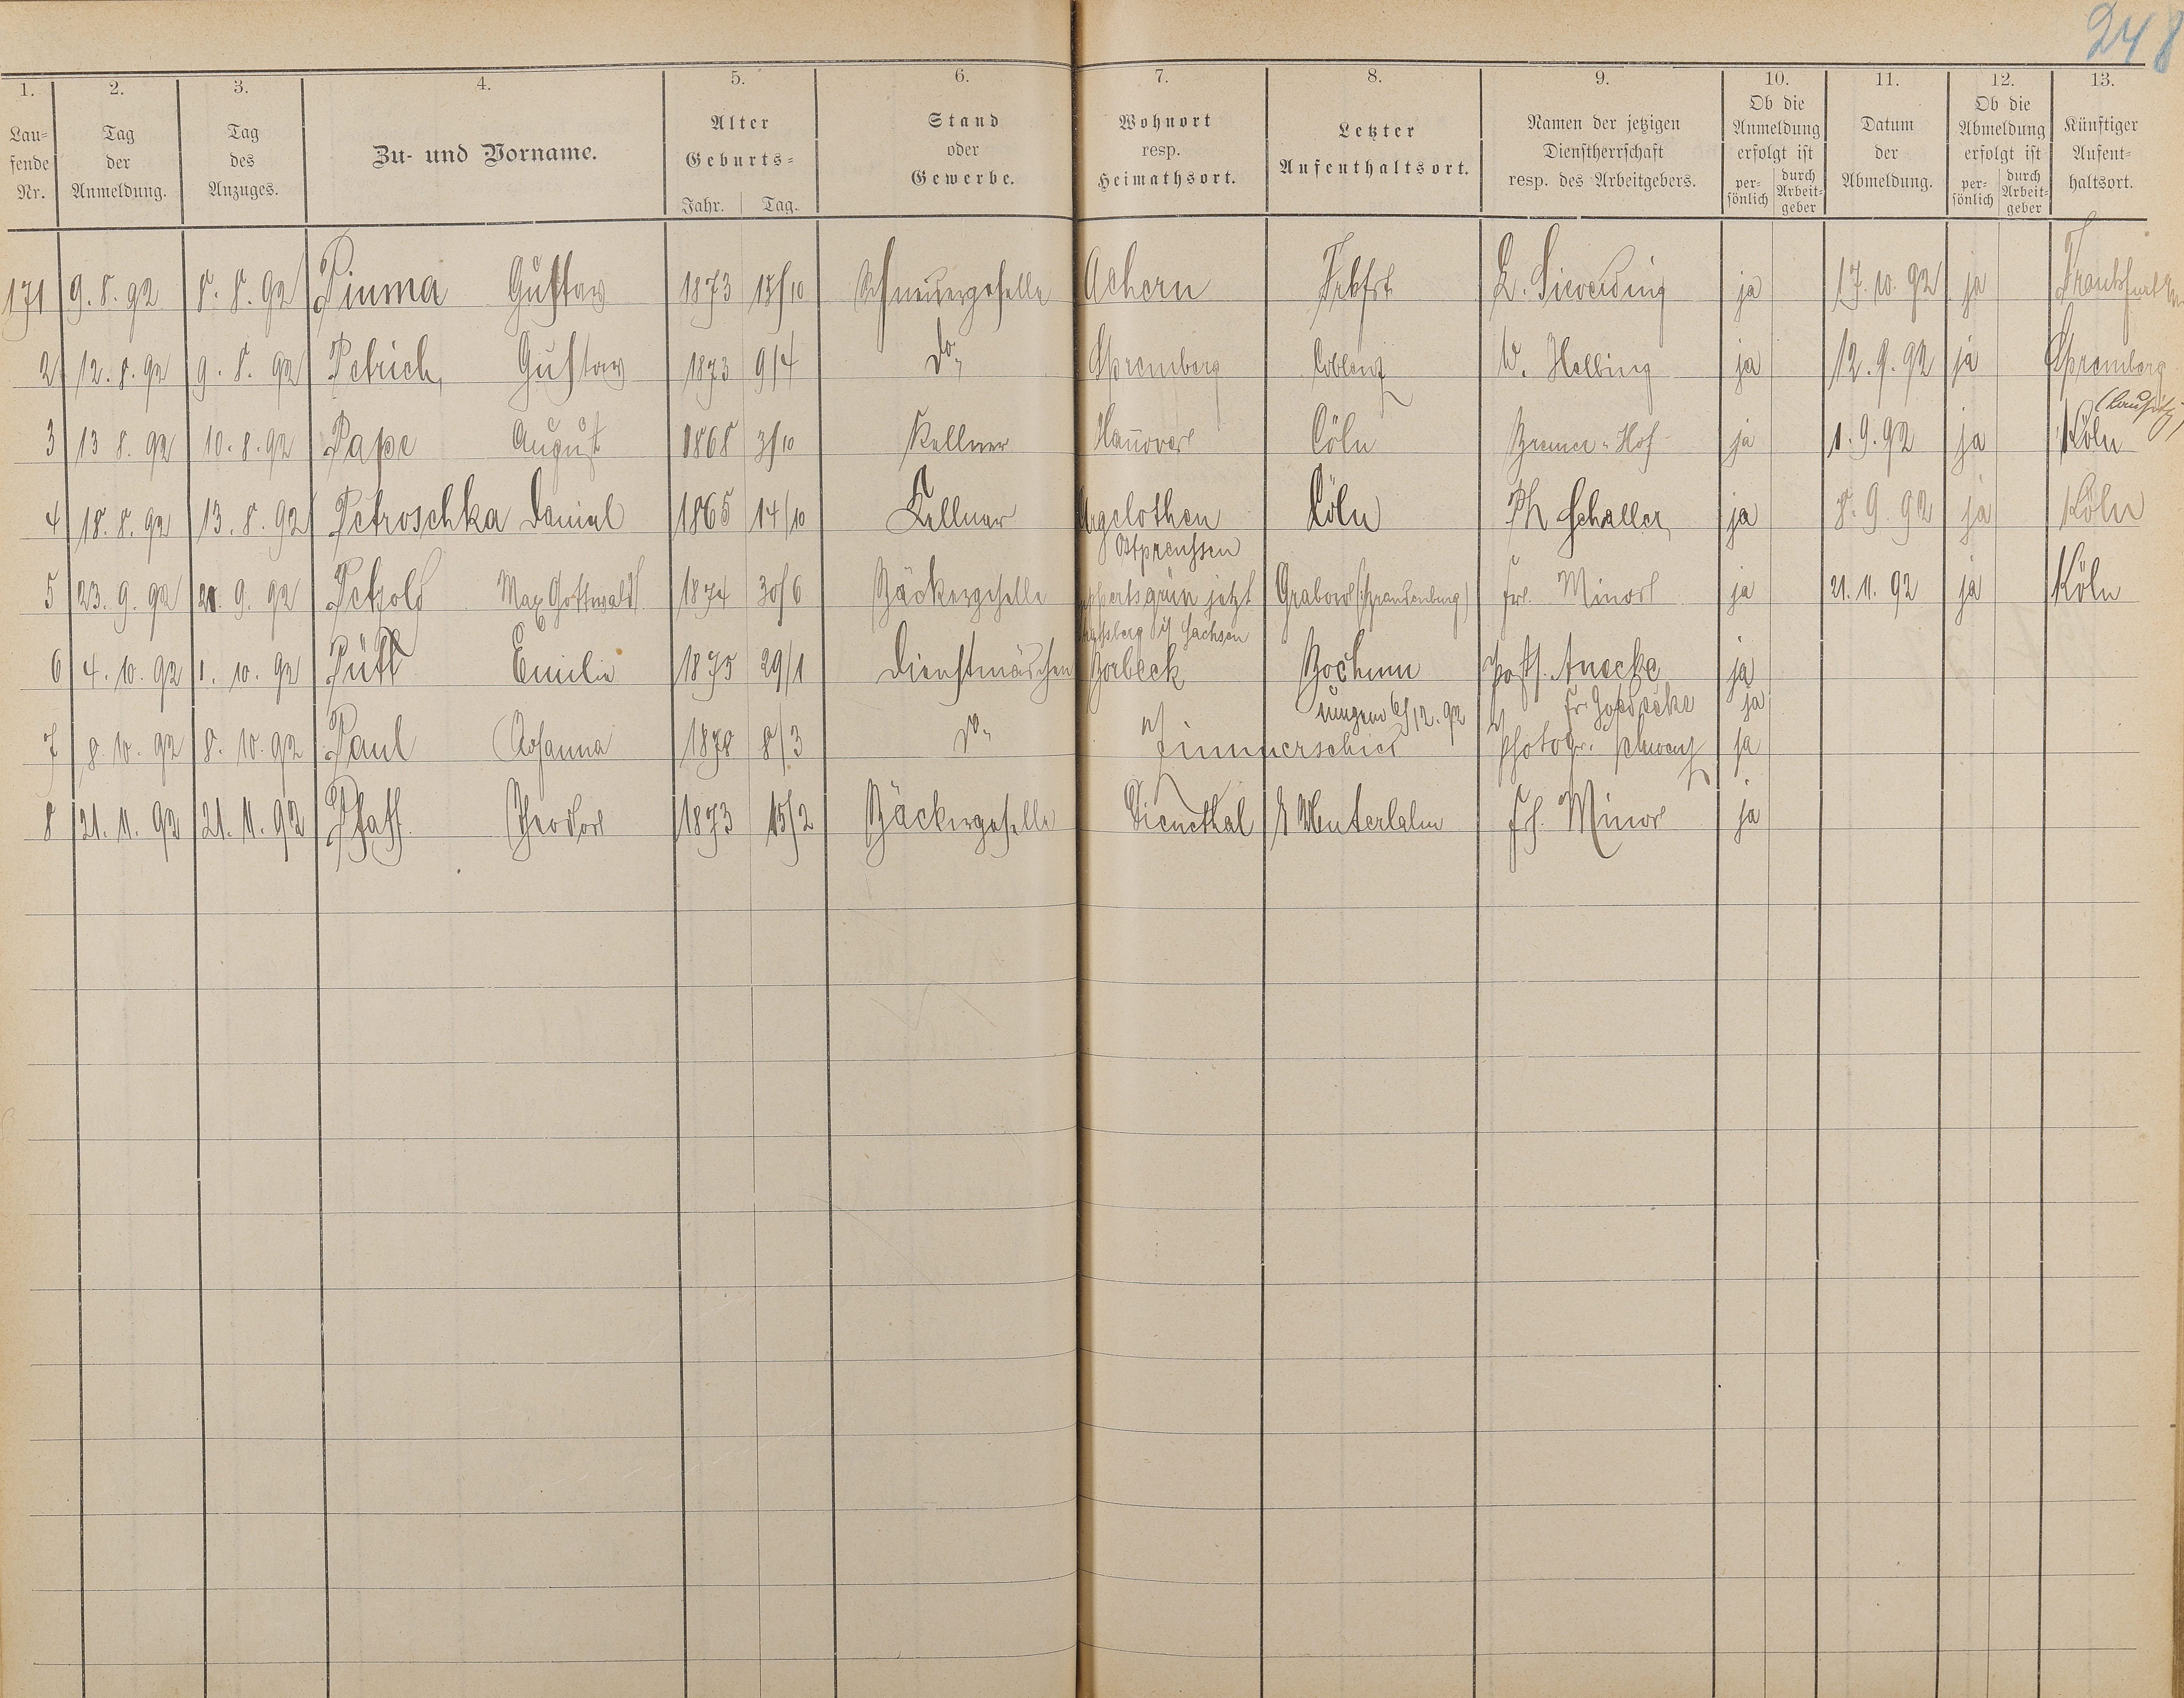 248
1. 2. 3. 4. 5. 6. 7. 8. 9. 10. 11. 12. 13.
Lau-
fende
Nr.
Tag
der
Anmeldung.
Tag
des
Anzuges.
Zu- und Vorname.
Alter
Geburts-
Jahr. Tag.
Stand
oder
Gewerbe.
Wohnort
resp.
Heimathsort.
Letzter
Aufenthaltsort.
Namen der jetzigen
Dienstherrschaft
resp. des Arbeitgebers.
Ob die
Anmeldung
erfolgt ist
per-
sönlich
durch
Arbeit-
geber
Datum
der
Abmeldung.
Ob die
Abmeldung
erfolgt ist
per-
sönlich
durch
Arbeit-
geber
Künftiger
Aufent-
haltsort.
171 9. 8. 92 8. 8. 92 Pinma Gustav 1873 13/10 Achern Frkfrt L. Sieverding ja 17. 10. 92 ja Frankfurt
2 12. 8. 92 9. 8. 92 Petrich, Gustav 1873 9/4 do. Spremberg Coblenz W. Helling ja 12. 9. 92 ja Spremberg
(Lausitz)
3 13 8. 92 10. 8. 92 Pape August 1868 3/10 Kellner Hannover Cöln Bremer-Hof ja 1. 9. 92 ja Köln
4 18. 8. 92 13. 8. 92 Petroschka Daniel 1865 14/10 Kellner Argelothen Cöln Ph Schaller ja 8. 9. 92 ja Köln
Ostpreussen
5 23. 9. 92 20. 9. 92 Petzold Max Gottwald 1874 30/6 Bäckergeselle jetzt Grabow (Brandenburg) Fr. Minor ja 21. 11. 92 ja Köln
i/ Sachsen
6 4. 10. 92 1. 10. 92 Pütt Emilie 1875 29/1 Dienstmädchen Borbeck Bochum Anecke ja
6/12. 92 Fr Goedecke ja
7 8. 10. 92 8. 10. 92 Paul Rosanna 1878 8/3 do. Zimmerschied Photogr. ja
8 21. 11. 92 21. 11. 92 Pfaff Theodor 1873 15/2 Bäckergeselle Dienethal Fr. Minor ja